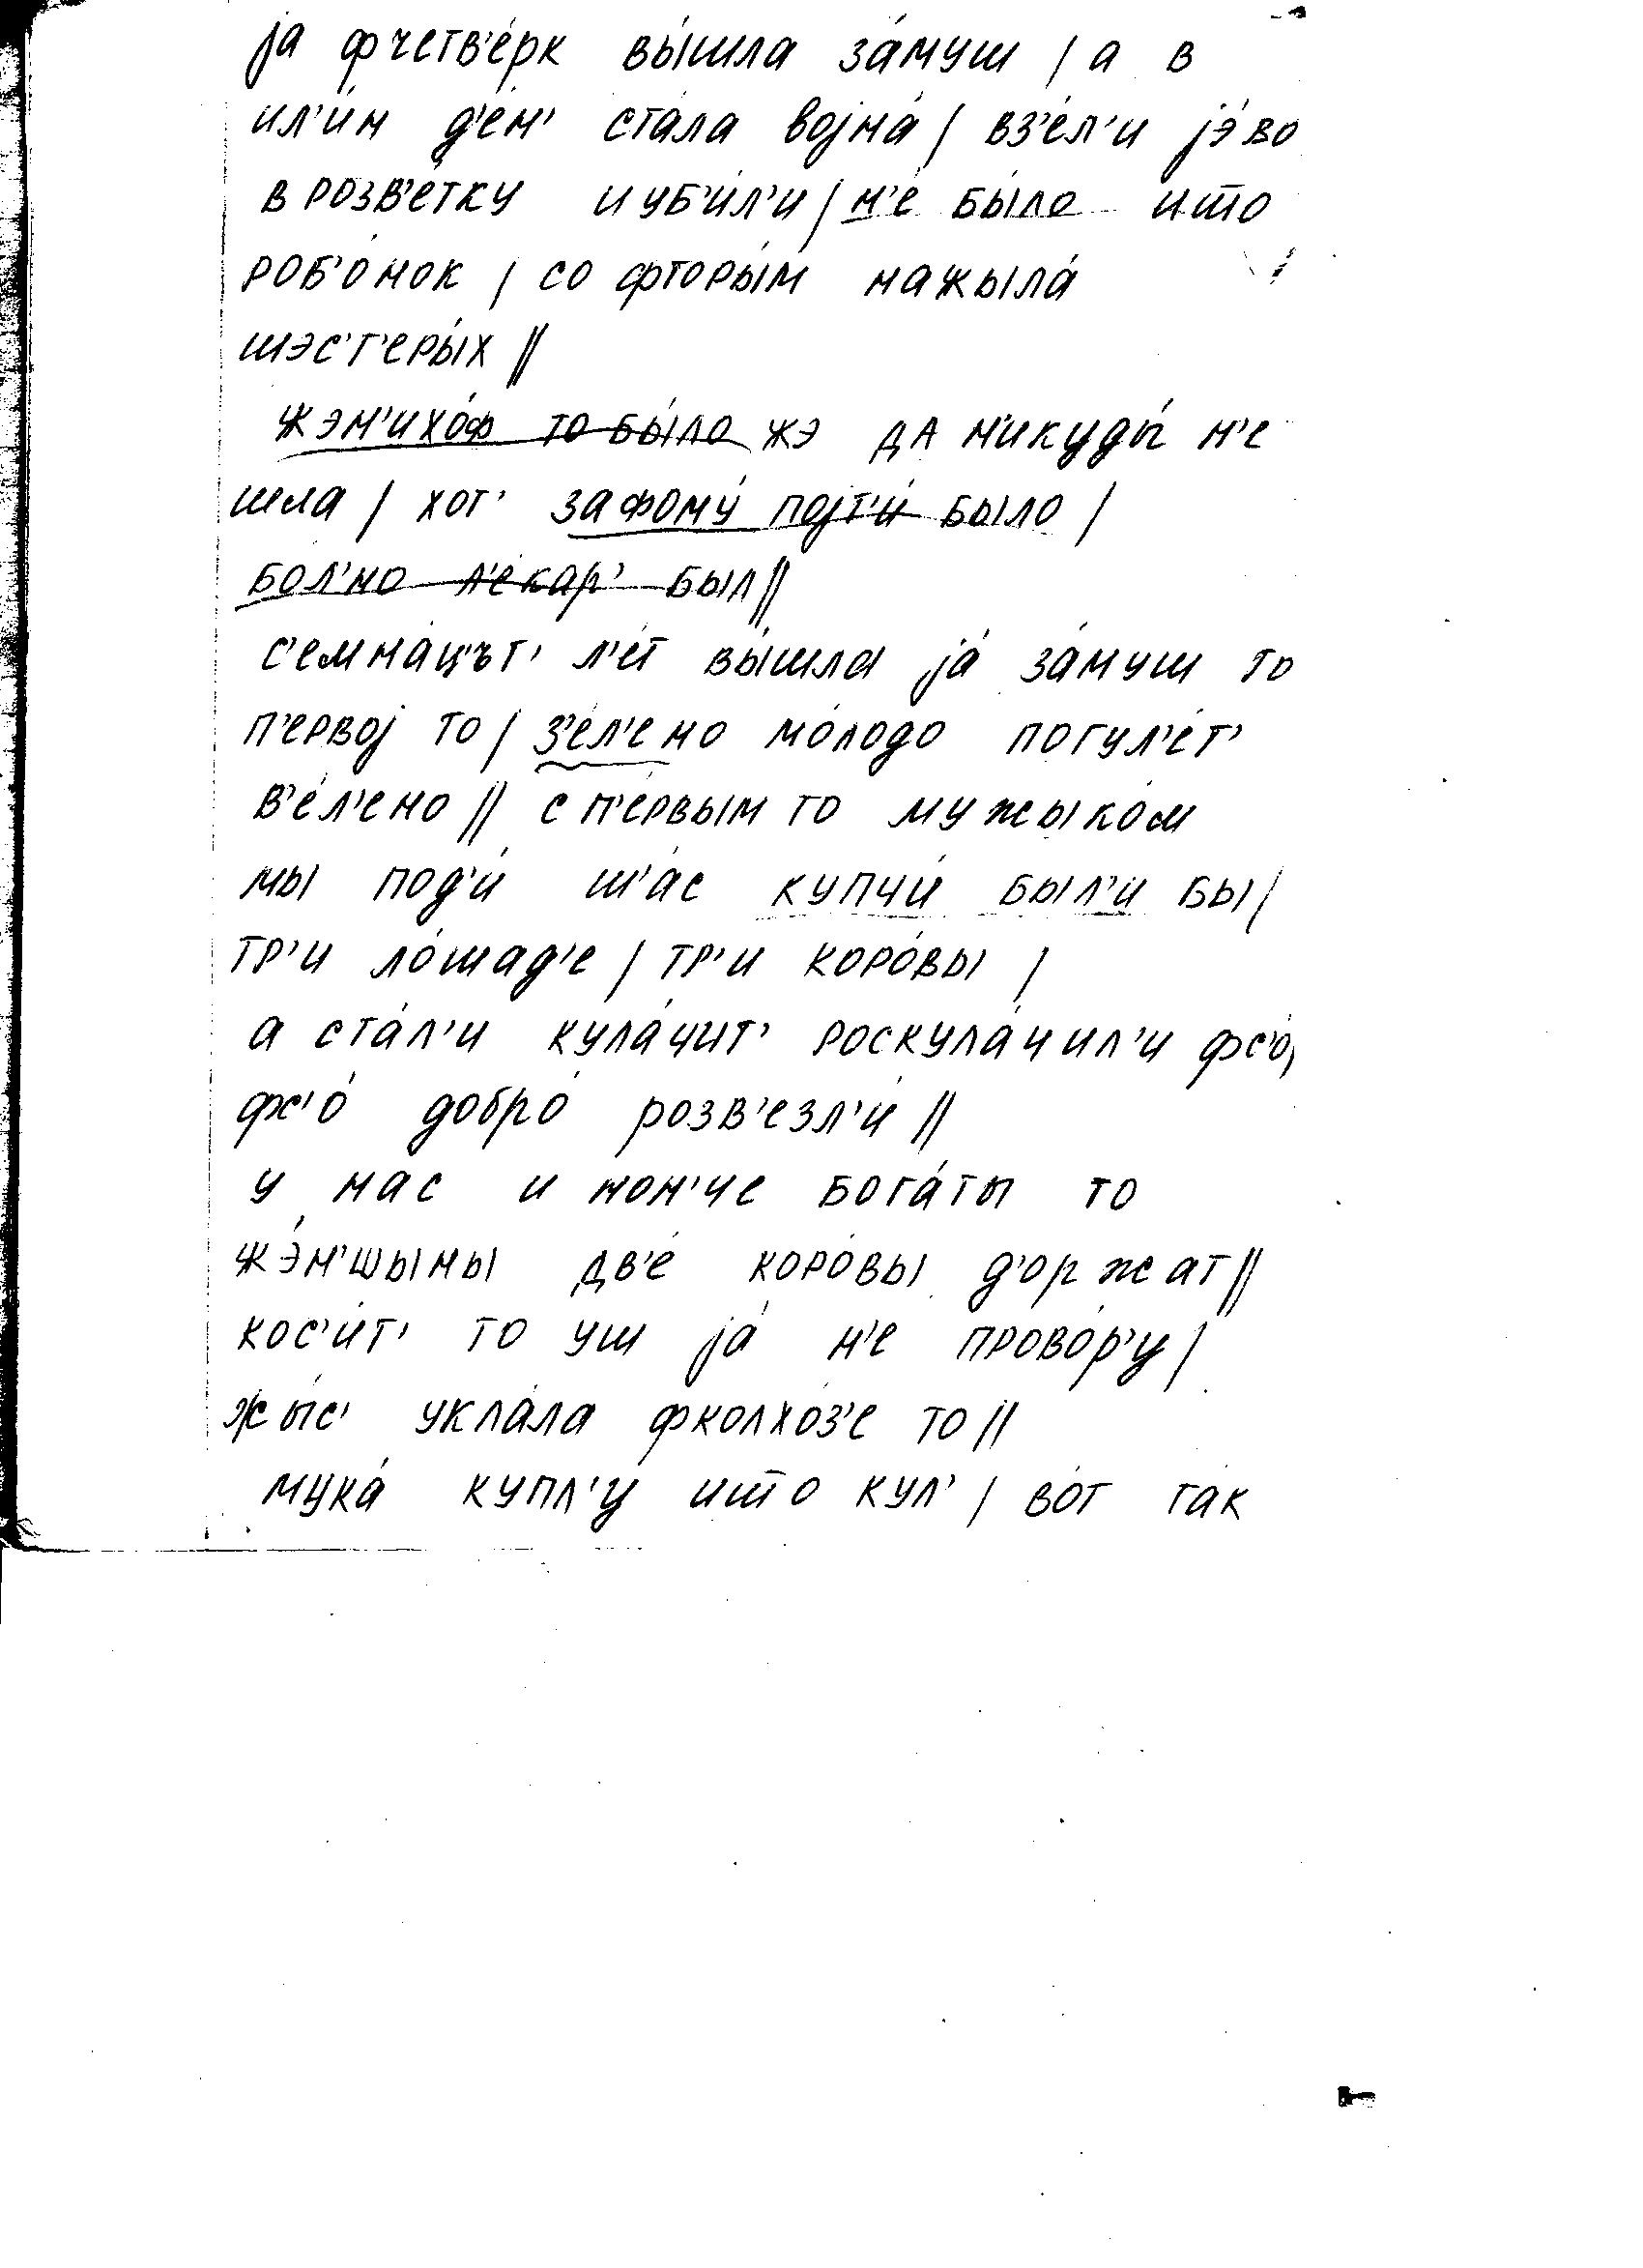 jа фчетв'е́рк вы́шла за́муш / а в
ил'и́н д'е́н' ста́ла воjна́ / вз'е́л'и jэ́во
в розв'е́тку и уб'и́л'и / н'е́ бы́ло ишо
роб'о́нок / со фторы́м нажыла́
шэс'т'еры́х //
жэн'ихо́ф то бы́ло жэ да н'икуды́ н'е
шла / хот' за фому́ поjт'и́ было /
бол'но л'е́кар' был //
с'емна́ц'ът' л'е́т вы́шла jа́ за́муш то
п'ервоj то / з'е́л'ено мо́лодо погул'е́т'
в'е́л'ено // с п'е́рвым то мужыко́м
мы под'и́ ш'а́с купчи́ был'и бы /
тр'и ло́шад'е / тр'и коро́вы /
а ста́л'и кула́чит' роскула́чил'и фс'о́,
фс'о́ добро́ розв'езл'и́ //
у нас и нон'че бога́ты то
жэ́н'шыны дв'е́ коро́вы д'о́ржат //
кос'и́т' то уш jа́ н'е прово́р'у /
жы́с' укла́ла фколхо́з'е то //
мука́ купл'у́ ишо кул' / во́т та́к